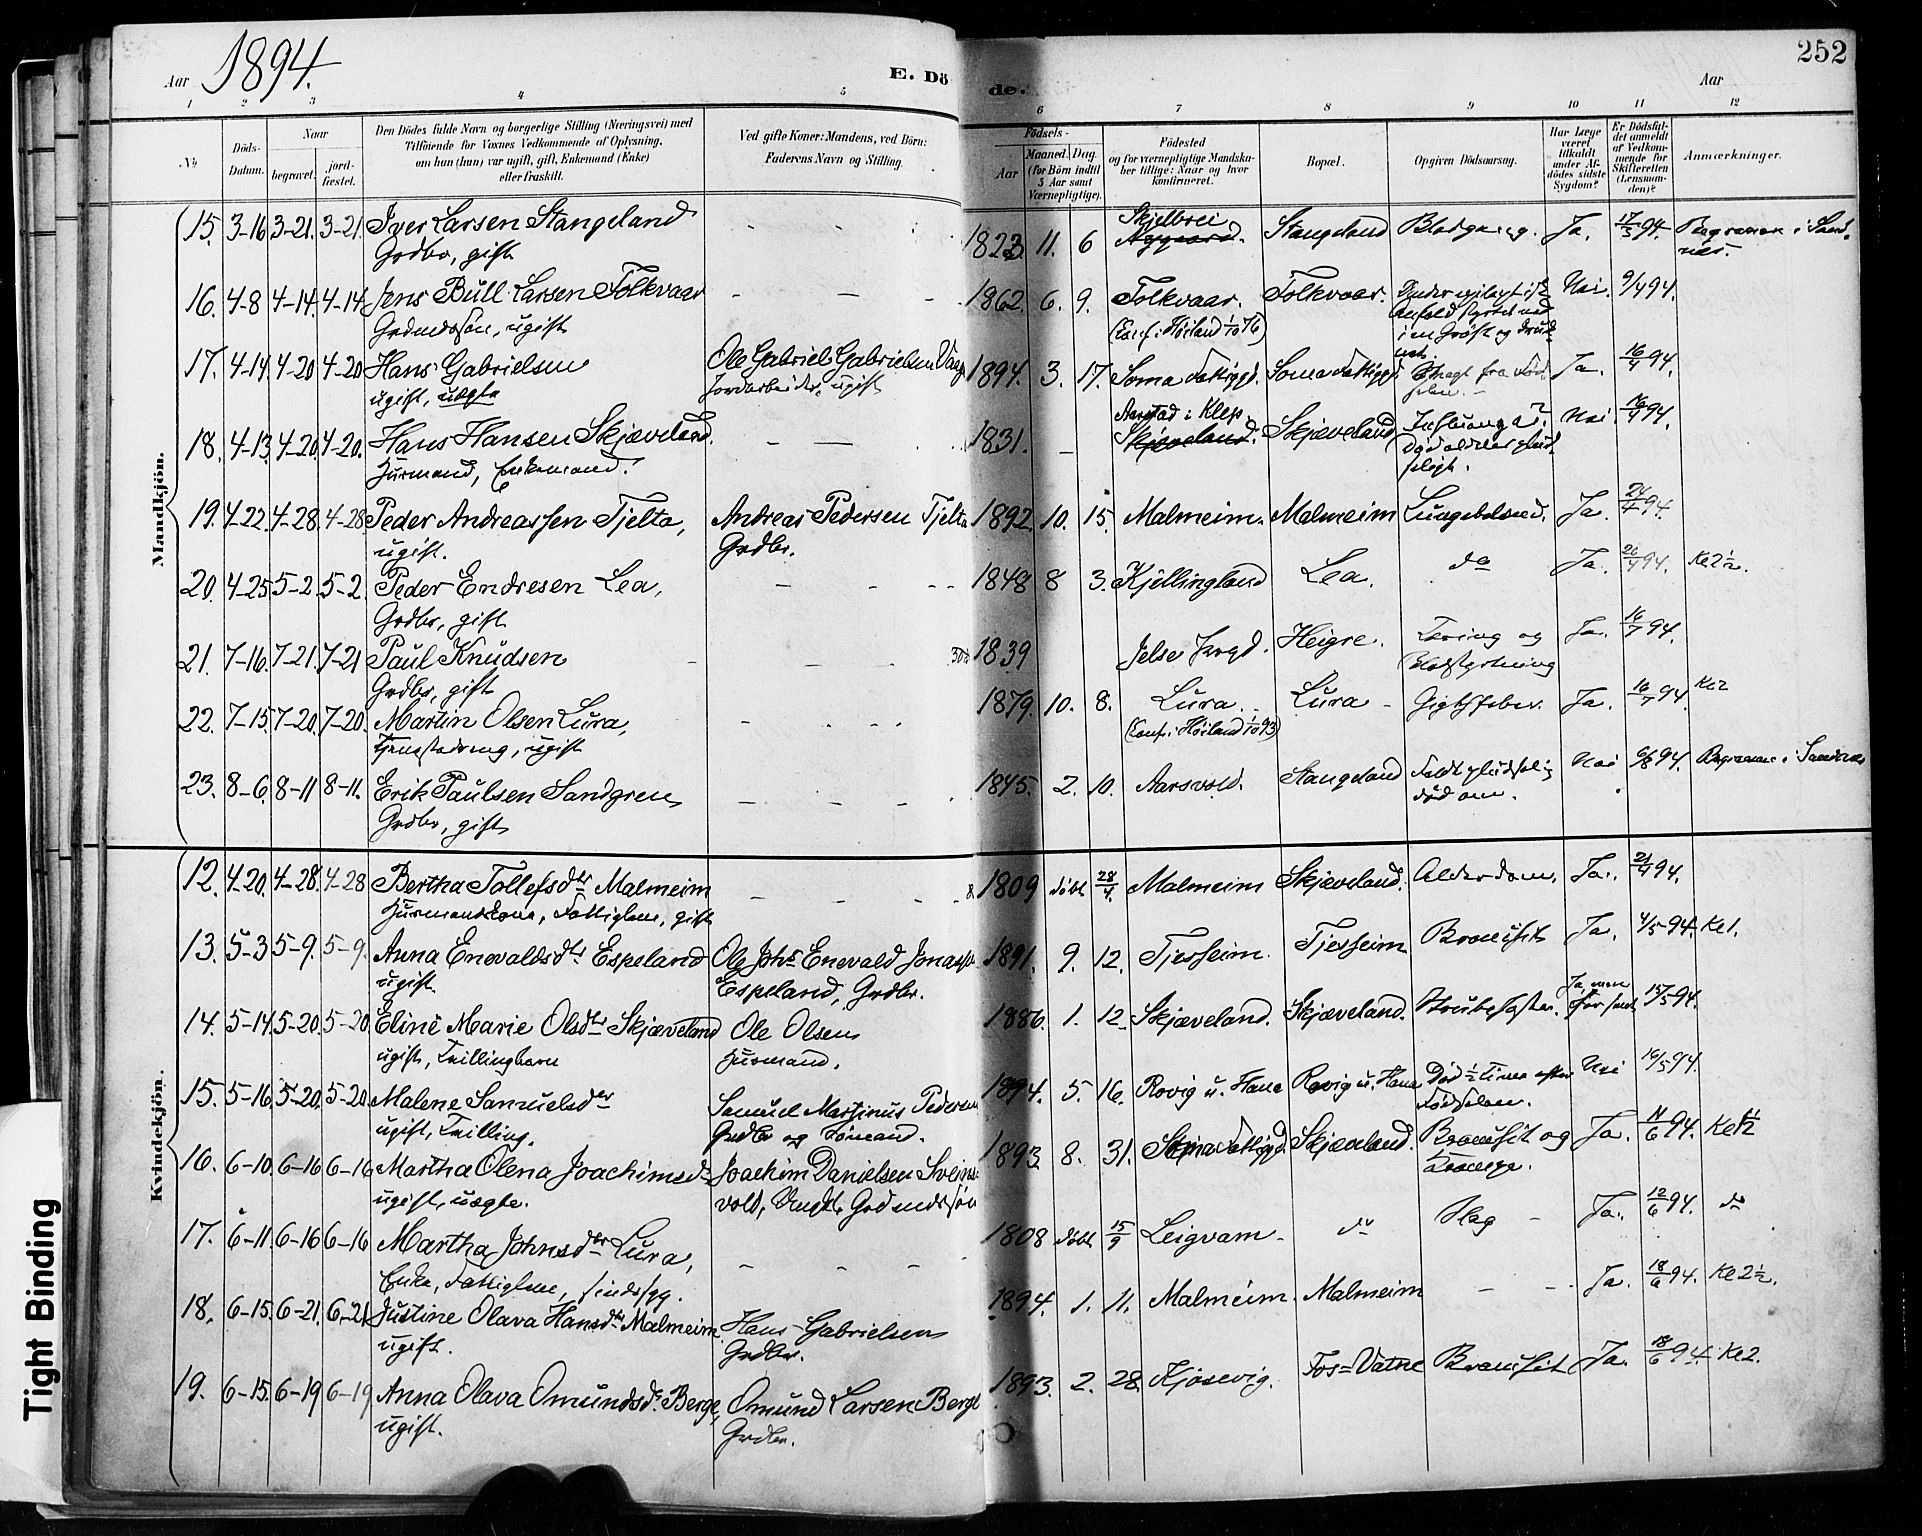 1894.
252
Aar
E. Dö
de.
Aar
1 2 3 4 5 6 7 8 9 10 11 12
No
Döds-
Datum.
Naar
begravet.
jord-
fæstet.
Den Dödes fulde Navn og borgerlige Stilling (Næringsvei) med
Tilföiende for Voxnes Vedkommende af Oplysning,
om hun (hun) var ugift, gift, Enkemand (Enke)
eller fraskilt.
Ved gifte Koner: Mandens, ved Börn:
Faderens Navn og Stilling.
Födsels-
Aar
Maaned.
Dag.
(for Börn indtil
5 Aar samt
Værnepligtige).
Födested
og for værnepligtige Mandska-
ber tillige: Naar og hvor
konfirmeret.
Bopæl.
Opgiven Dödsaarsag.
Har Læge
været
tilkaldt
under Af-
dödes sidste
Sygdom?
Er Dödsfal-
det anmeldt
af Vedkom-
mende for
Skifteretten
(Lensman-
den)?
Anmærkninger.
Mandkjön.
15. 3-16 3-21. 3-21. Iver Larsen Stangeland 1823 11. 6 Skjelbrei Stangeland Ja. 17/3 94. Begraven i Sand-
Grdbr, gift nes.
16. 4-8 4-14 4-14 Jens Bull Larsen Folkvaar 1862. 6. 9. Folkvaar. Folkvaar. Nei. 9/4 94.
Grdmdssön, ugift (Conf. i Höiland 1/10 76)
i en Gröft og druk-
net
17. 4-14. 4-20 4-20 Hans Gabrielsen Ole Gabriel Gabrielsen 1894. 3. 17. Soma Fattiggd. Soma Fattiggd. Svagt fra Föd- Ja. 16/4 94.
ugift, uægte Jordarbeider, ugift selen.
18. 4-13. 4-20. 4-20. Hans Hansen Skjæveland. 1831. Aarstad i Klep Skjæveland. Skjæveland Influenza? Nei 16/4 94.
Husmand, Enkemand. Död aldeles plud-
seligt.
19. 4-22. 4-28. 4-28. Peder Andreassen Tjelta, Andreas Pedersen Tjelta 1892. 10. 15. Malmeim. Malmeim Lungebetænd. Ja. 24/4 94.
ugift. Grdbr.
20. 4-25 5-2 5-2. Peder Endresen Lea, 1848 8 3. Kjellingland Lea. do Ja. 26/4 94. Kl 2½.
Grdbr, gift
21. 7-16. 7-21. 7-21 Paul Knudsen 1839 Jelse Prgd. Heigre. Tæring og Ja. 16/7 94.
Grdbr, gift Blodstyrtning
22. 7-15. 7-20. 7-20. Martin Olsen Lura, 1879. 10. 8. Lura. Lura Gigtfeber. Ja. 16/7 94. Kl 2
Tjenestedreng, ugift (Conf. i Höiland 1/10 93)
23. 8-6. 8-11 8-11. Erik Paulsen Sandgren 1845. 2. 10. Aarsvold. Stangeland Faldt pludselig Nei 6/8 94. Begraven i Sandnes
Grdbr, gift död om.
Kvindekjön.
12. 4-20. 4-28. 4-28 Bertha Tollefsdtr Malmeim 1809 döbt 28/4. Malmeim Skjæveland. Alderdom. Ja. 21/4 94.
Husmandskone, Fattiglem, gift
13. 5-3 5-9. 5-9. Anna Enevaldsdtr Espeland Ole Johs Enevald 1891. 9. 12. Tjessheim. Tjessheim Bronchit Ja. 4/5-94. Kl 1.
ugift. Espeland, Grdbr.
14. 5-14. 5-20. 5-20. Eline Marie Olsdtr Skjæveland Ole Olsen 1886. 1. 12 Skjæveland. Skjæveland. Strubehoste. Ja, men for sent 15/5 94.
ugift, Tvillingbarn Husmand.
15. 5-16. 5-20. 5-20. Malene Samuelsdtr Samuel Martinus Pedersen 1894. 5. 16. Rovig u. Hana Rovig u. Hana Död ½ Time efter Nei 16/5 94.
ugift, Tvilling. Grdbr og Sömand. Födselen.
16. 6-10. 6-16 6-16 Martha Olena Joachimsdtr Joachim Danielsen Sveins- 1893. 8. 31. Soma Fattiggd. Skjæveland. Bronchit og Ja. 11/6 94. Kl ½
ugift, uægte. vold, Grdmdssön
17. 6-11. 6-16 6-16 Martha Johnsdtr Lura, 1808 döbt 15/9 Leigvam do Slag Ja. 12/6 94. do
Enke, Fattiglem, sindssyg.
18. 6-15. 6-21. 6-21 Justine Olava Hansdtr Malmeim Hans Gabrielsen 1894. 1. 11. Malmeim. Malmeim Ja. 18/6 94. Kl 2½.
ugift. Grdbr.
19. 6-15. 6-19 6-19 Anna Olava Omundsdtr Berge, Omund Larsen Berge 1893. 2. 28. Kjösevig. Fos-Vatne Bronchit Ja. 18/6 94. Kl 2.
ugift. Grdbr.
Tight Binding